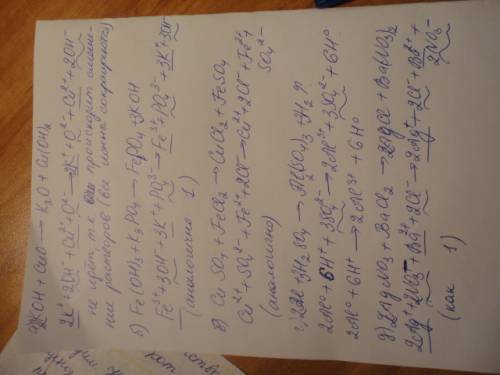 а) KOH + CuO → K₂O + Cu(OH)₂
2K⁺ + 2OH⁻ + Cu²⁺ + O²⁻ → 2K⁺ + O²⁻ + Cu²⁺ + 2OH⁻
не идёт, т.к. происходит
растворов (все ионы сокращаются)
б) Fe(OH)₃ + K₃PO₄ → FePO₄ + 3KOH
Fe³⁺ + 3OH⁻ + 3K⁺ + PO₄³⁻ → Fe³⁺ + PO₄³⁻ + 3K⁺ + 3OH⁻
(аналогично 1)
в) CuSO₄ + FeCl₂ → CuCl₂ + FeSO₄
Cu²⁺ + SO₄²⁻ + Fe²⁺ + 2Cl⁻ → Cu²⁺ + 2Cl⁻ + Fe²⁺ +
SO₄²⁻
(аналогично)
г) 2Al + 3H₂SO₄ → Al₂(SO₄)₃ + 3H₂↑
2Al⁰ + 6H⁺ + 3SO₄²⁻ → 2Al³⁺ + 3SO₄²⁻ + 6H⁰
2Al⁰ + 6H⁺ → 2Al³⁺ + 6H⁰
д) 2AgNO₃ + BaCl₂ → 2AgCl + Ba(NO₃)₂
2Ag⁺ + 2NO₃⁻ + Ba²⁺ + 2Cl⁻ → 2Ag⁺ + 2Cl⁻ + Ba²⁺ +
2NO₃⁻
(как 1)